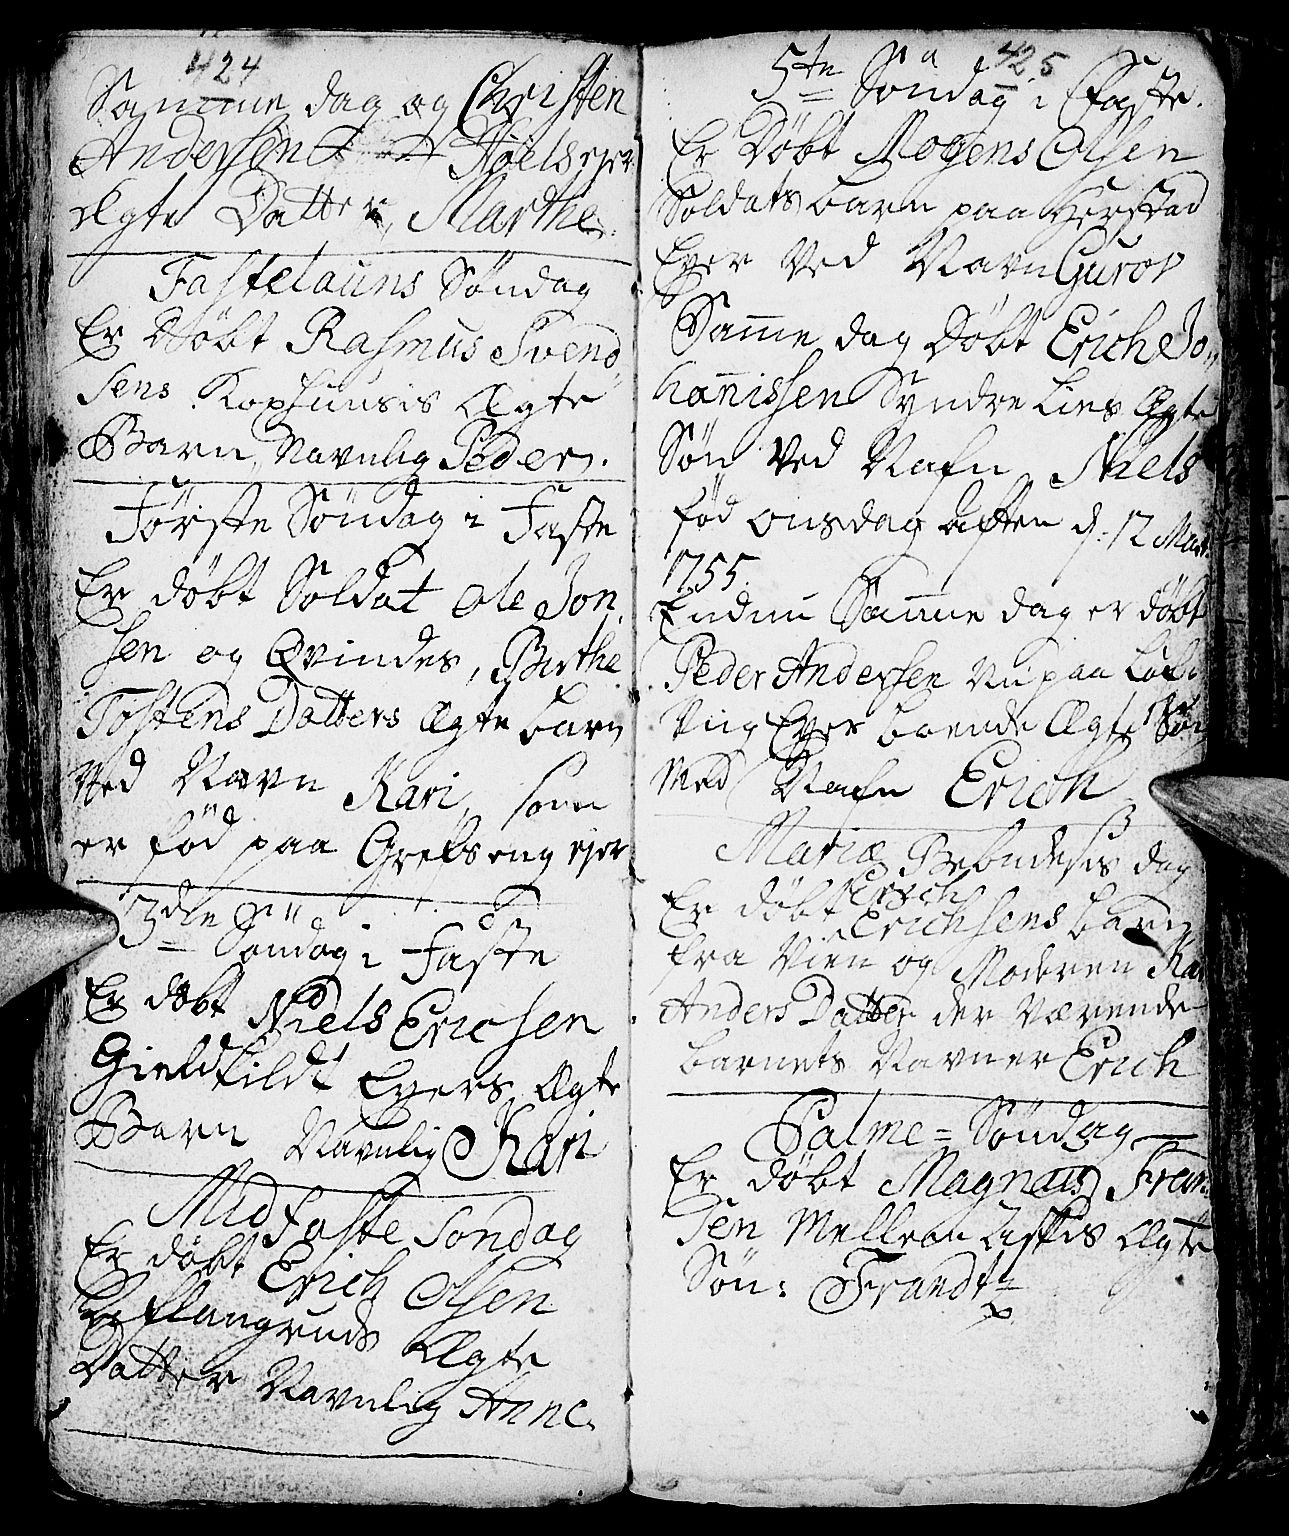 424
Samme dag og Christen
Andersen Støels ejer
ægte Datter, Marthe.
Fastelauns Søndag
Er Døbt Rasmus Svend
sens Kophuusis Ægte
Barn, Navnlig Peder.
Første Søndag i Faste
Er døbt Soldat Ole Jon
sen og Qvindes, Birthe
Tostens Datters Ægte barn
Ved Navn Kari, som
er fød paa Grefs eng ejer
3die Søndag i Faste
Er døbt Niels Ericsen
Gieldkildt Eyers Ægte
Barn Navnlig Kari
Midfaste Søndag
Er døbt Erich Olsen
Ægte
Datter Navnlig Anne.
425
5te Søndag i Faste.
Er Døbt Mogens Olsen
Soldats barn paa Herstad
Eyer Ved Navn Guroe
Samme dag Døbt Erich Jo
hannissen Syndre Lies Ægte
Søn Ved Nafn Niels
fød onsdag aften d: 12 Mart:
1755.
Endnu Samme dag er døbt
Peder Andersen Nu paa
Eyer boende Ægte Søn
Med Nafn Erich
Mariæ Bebudelsis dag
Er døbt Erich
Erichsens barn
fra Vien og Moderen Kari
Anders Datter der Værende
barnets Navn er Erich
Palme = Søndag
Er døbt Magnus Fran
sen Mellem Ægte
Søn: Frandtz